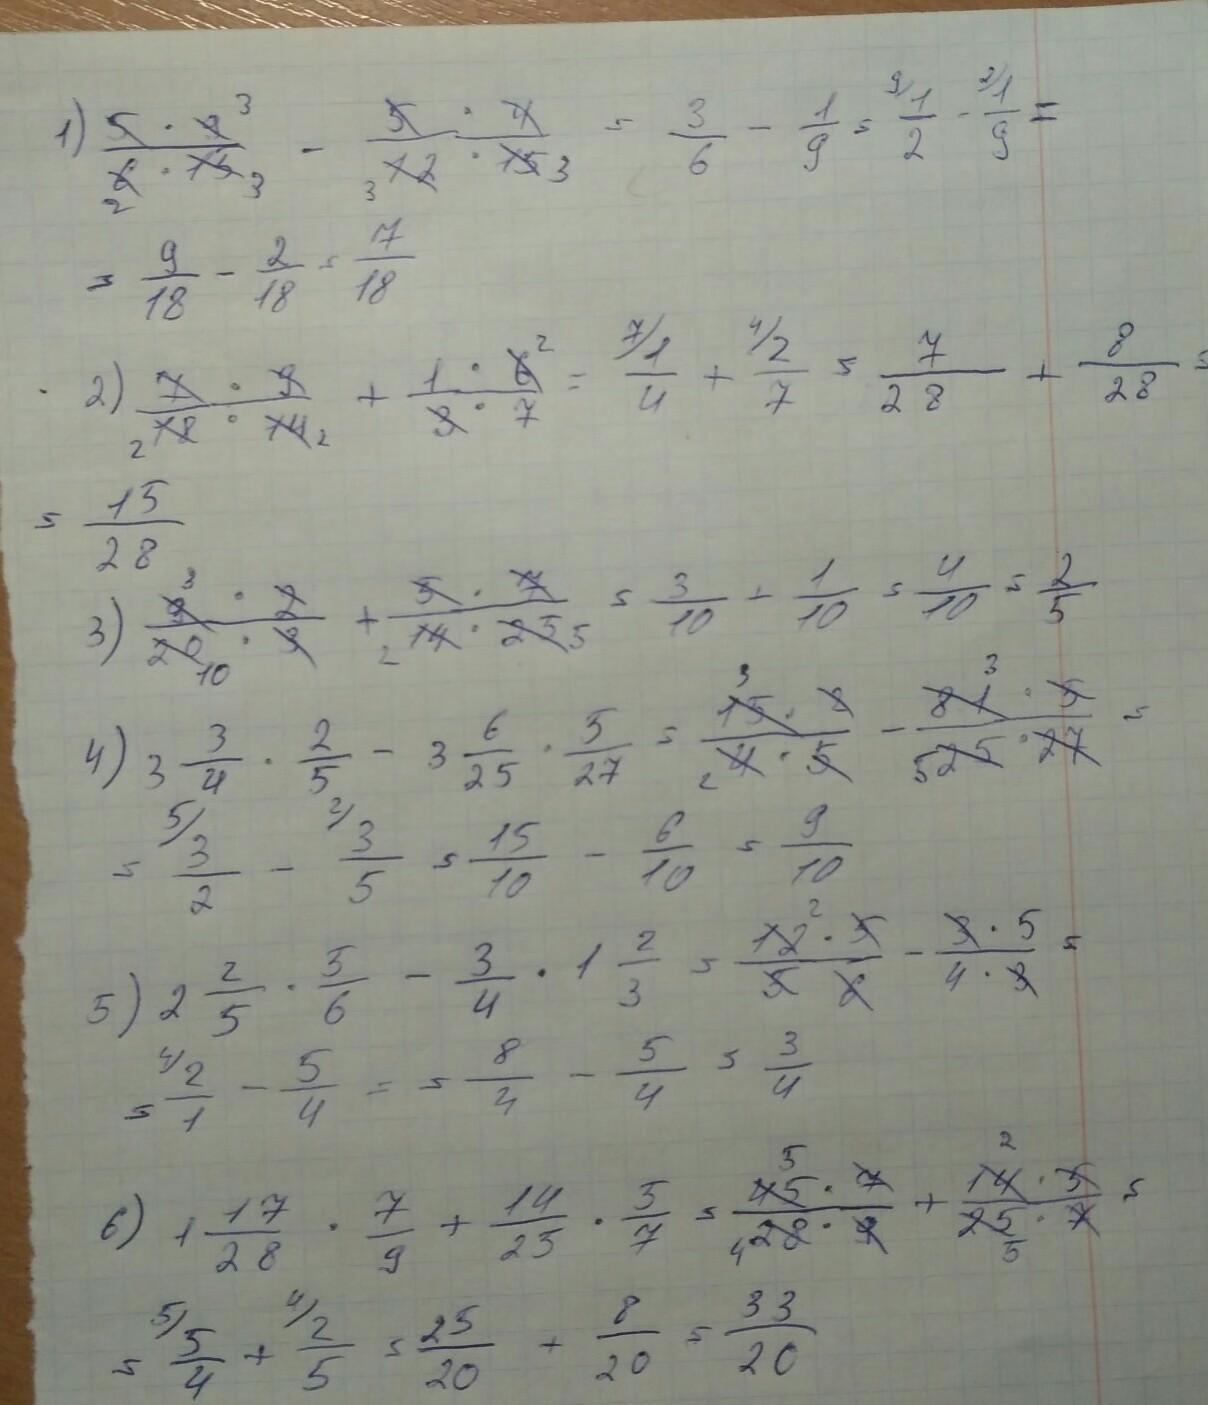 1) (5 · 9³)/(6₂ · 15₃) − (5 · 4)/(₃12 · 15₃) = 3/6 − 1/9 = ⁹⁄1/2 − ²⁄1/9 =
= 9/18 − 2/18 = 7/18
2) (7 · 9)/(₂18 · 14₂) + (1 · 6²)/(3 · 7) = ⁷⁄1/4 + ⁴⁄2/7 = 7/28 + 8/28 =
= 15/28
3) (9³ · 2)/(20₁₀ · 3) + (5 · 7)/(₂14 · 25₅) = 3/10 + 1/10 = 4/10 = 2/5
4) 3 3/4 · 2/5 − 3 6/25 · 5/27 = (15³ · 2)/(₂4 · 5) − (81³ · 5)/(₅25 · 27) =
= ⁵⁄3/2 − ²⁄3/5 = 15/10 − 6/10 = 9/10
5) 2 2/5 · 5/6 − 3/4 · 1 2/3 = (12² · 5)/(5 6) − (3 · 5)/(4 · 3) =
= ⁴⁄2/1 − 5/4 = = 8/4 − 5/4 = 3/4
6) 1 17/28 · 7/9 + 14/25 · 5/7 = (45⁵ · 7)/(₄28 · 9) + (14² · 5)/(25₅ · 7) =
= ⁵⁄5/4 + ⁴⁄2/5 = 25/20 + 8/20 = 33/20